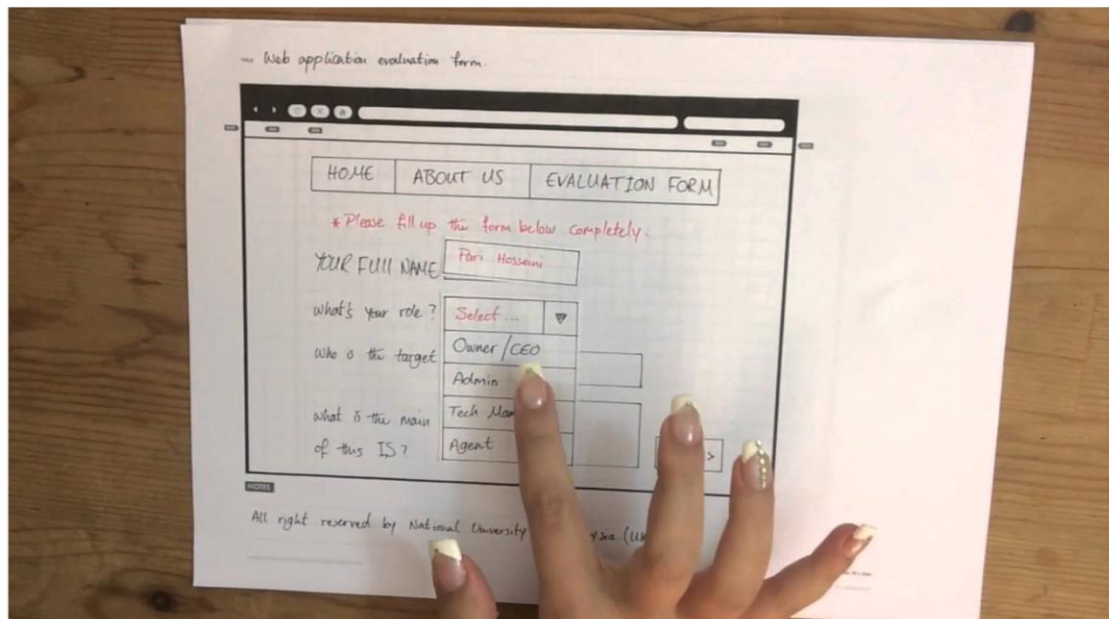 Web application evaluation form.
HOME ABOUT US EVALUATION FORM
* Please fill up the form below completely.
YOUR FULL NAME Pari Hosseini
What's your role? Select ...
Owner/CEO
Who is the target
Admin
what is the main Tech
of this IS? Agent
>
NOTES
All right reserved by National University